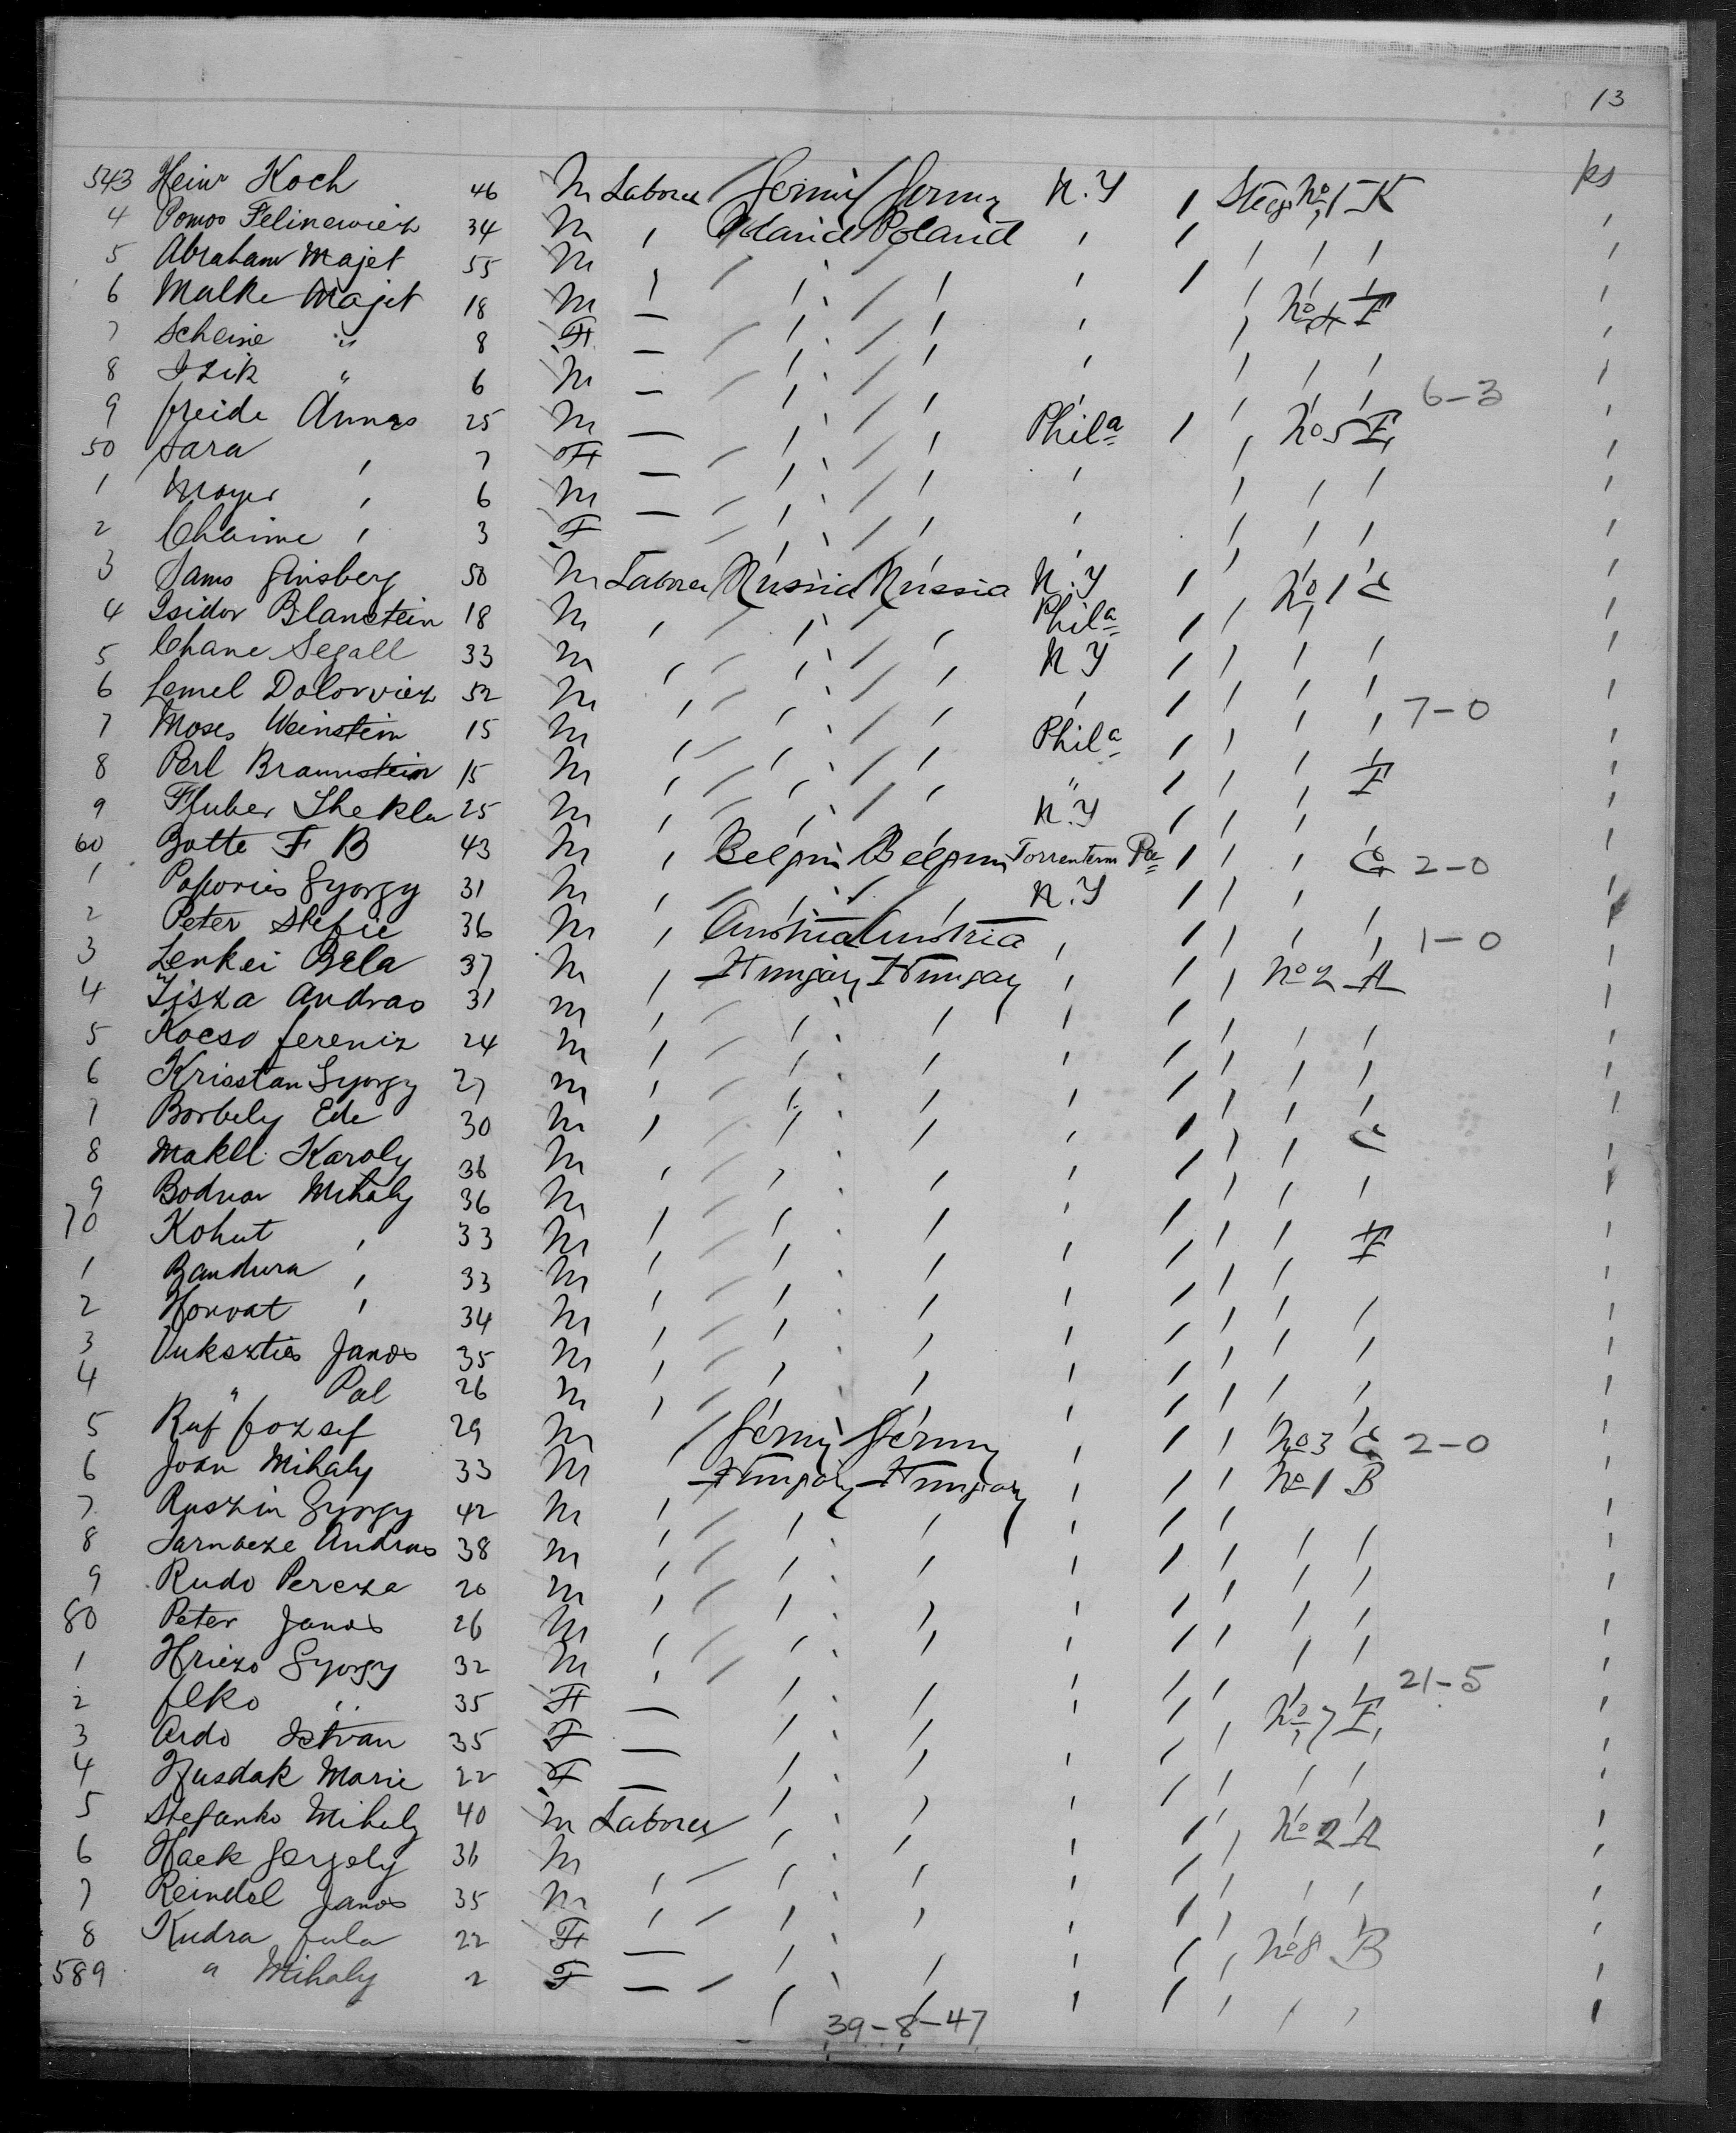 13
543 Heinr Koch 46 M Laborer / Germy / Germy N.Y / Steege No 1 K ps
4 Pomos Felinewicz 34 M " Poland Poland " / " " " "
5 Abraham Majet 55 M " / " / " " / " " " "
6 Malke Majet 18 M — / " / " " " No 4 F "
7 Scheine " 8 F — / " / " " " " " "
8 Izik " 6 M — / " / " " " " " "
9 Freide Annas 25 M — / " / " Phila / " No 5 F 6-3 "
50 Sara " 7 F — / " / " " " " " "
1 Mayer " 6 M — / " / " " " " " "
2 Chaime " 3 F — / " / " " " " " "
3 Sams Ginsberg 50 M Laborer Russia Russia N.Y / " No 1 C "
4 Isidor Blanstein 18 M " / " / " Phila / " " " "
5 Chane Segall 33 M " / " / " N Y / " " " "
6 Lemel Dolowiez 52 M " / " / " " / " " " "
7 Moses Weinstein 15 M " / " / " Phila / " " " 7-0 "
8 Perl Braunstein 15 M " / " / " " / " " F "
9 Shekla 25 M " / " / " N.Y / " " " "
60 Botte F B 43 M " Belgim Belgium Pa / " " C 2-0 "
1 Gyorgy 31 M " / " / " N.Y / " " " "
2 Peter Stefie 36 M " Austria Austria " / " " " 1-0 "
3 Lenkei Bela 37 M " Hungary Hungay " / " No 2 A "
4 Tisza Andras 31 M " / " " " / " " " "
5 Kocso Ferenz 24 M " / " " " / " " " "
6 Krisstan Gyorgy 27 M " / " " " / " " " "
7 Borbely Ede 30 M " / " " " / " " C "
8 Makll Karoly 36 M " / " " " / " " " "
9 Bodnar Mihaly 36 M " / " " " / " " F "
70 Kohut " 33 M " / " " " / " " "
1 Bandura " 33 M " / " " " / " " " "
2 Horvat " 34 M " / " " " / " " " "
3 Vuksztics Janos 35 M " / " " " / " " " "
4 " Pal 26 M " / " " " / " " " "
5 Ruf Jozsef 29 M " / Germy Germy " / " No 3 C 2-0 "
6 Joan Mihaly 33 M " Hungary Hungary " / " No 1 B "
7 Ruszin Gyorgy 42 M " / " " " / " " " "
8 Andras 38 M " / " " " / " " " "
9 Rudo Pereza 20 M " / " " " / " " " "
80 Peter Janos 26 M " / " " " / " " " "
1 Hriezo Gyorgy 32 M " / " " " / " " " "
2 Jlko " 35 F — " " " / " No 7 F 21-5 "
3 Ardo Istvan 35 F — " " " / " " " "
4 Husdak Marie 22 F — " " " / " " " "
5 Stefanko Mihaly 40 M Laborer " " " / " No 2 A "
6 Hack Gergely 36 M " / " " " / " " " "
7 Reindel Janos 35 M " / " " " / " " " "
8 Kudra Jula 22 F — " " " / " No 8 B "
589 " Mihaly 2 F — / " " " / " " " "
39-8-47